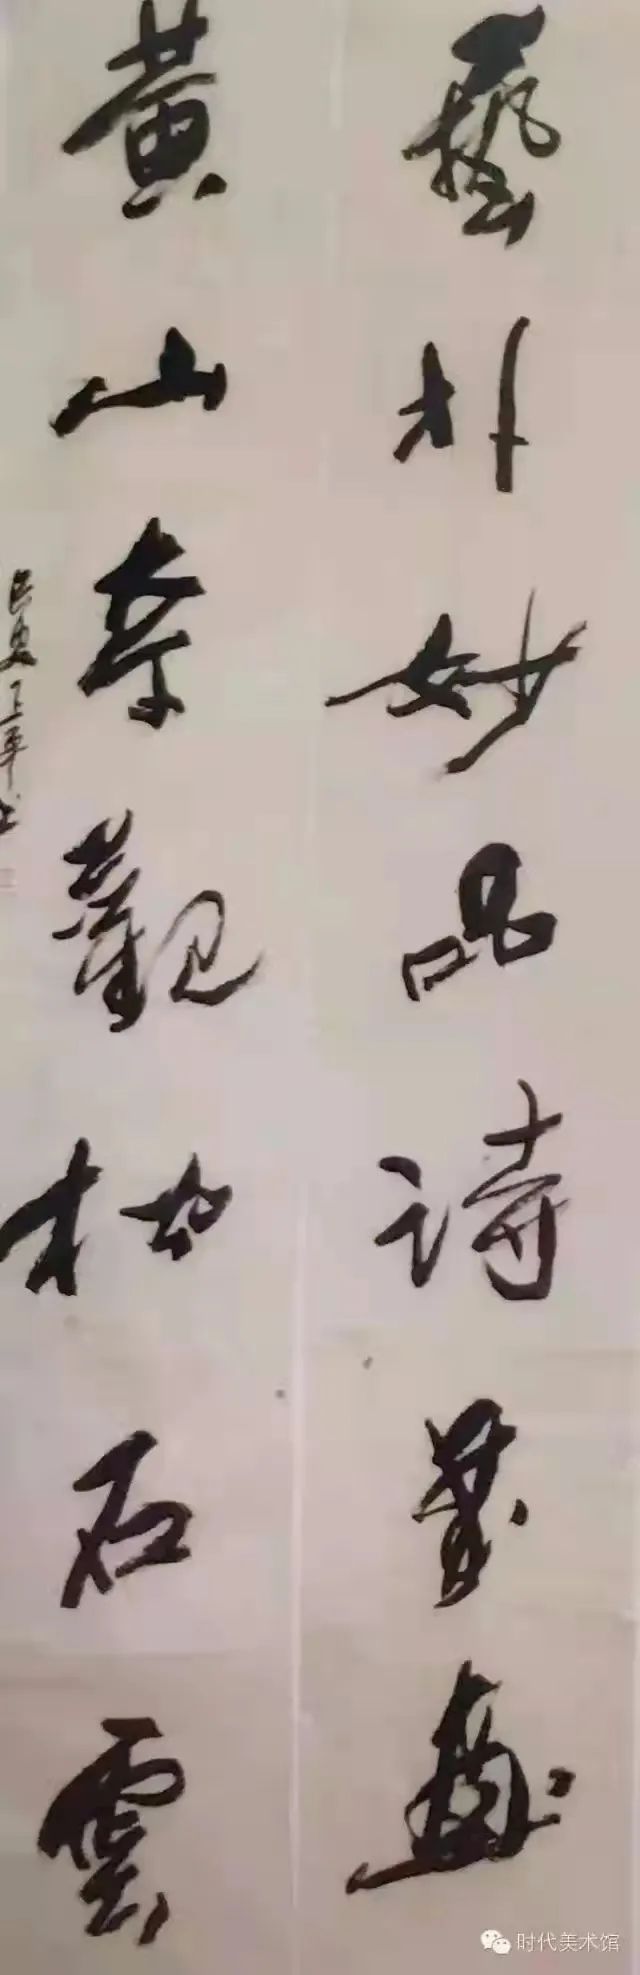 藝朴妙品詩書畫
黃山奇觀松石雲
时代美术馆